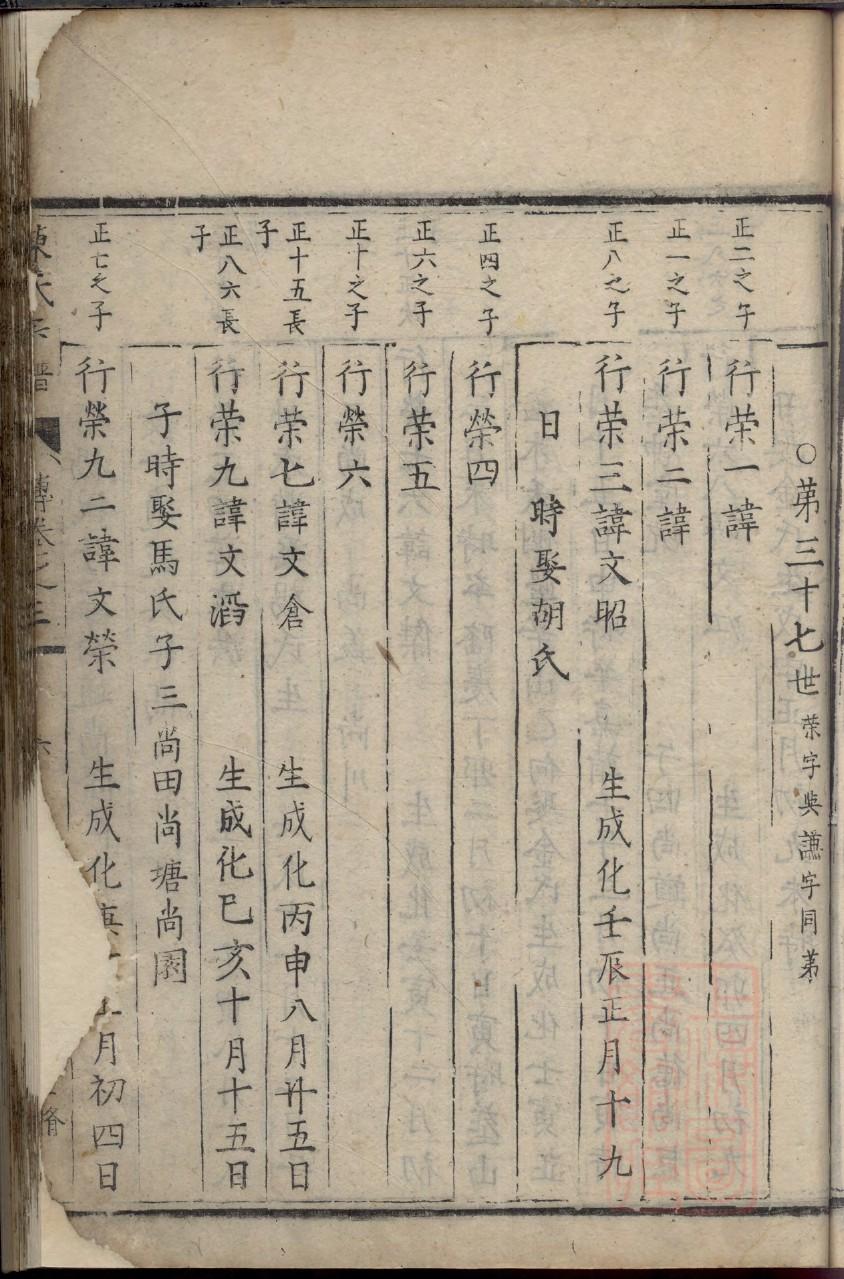 ○苐三十七世荣字與謙字同苐
正二之子
行荣一諱
正一之子
行荣二諱
正八之子
行荣三諱文昭 生成化壬辰正月十九
日 時娶胡氏
正四之子
行榮四
正六之子
行荣五
正十之子
行榮六
正十五長子
行荣七諱文倉 生成化丙申八月廿五日
正八六長子
行荣九諱文滔 生成化已亥十月十五日
子時娶馬氏子三尚田尚塘尚園
正七之子
行榮九二諱文榮 生成化 月初四日
陳氏宗譜 傳卷之三 六